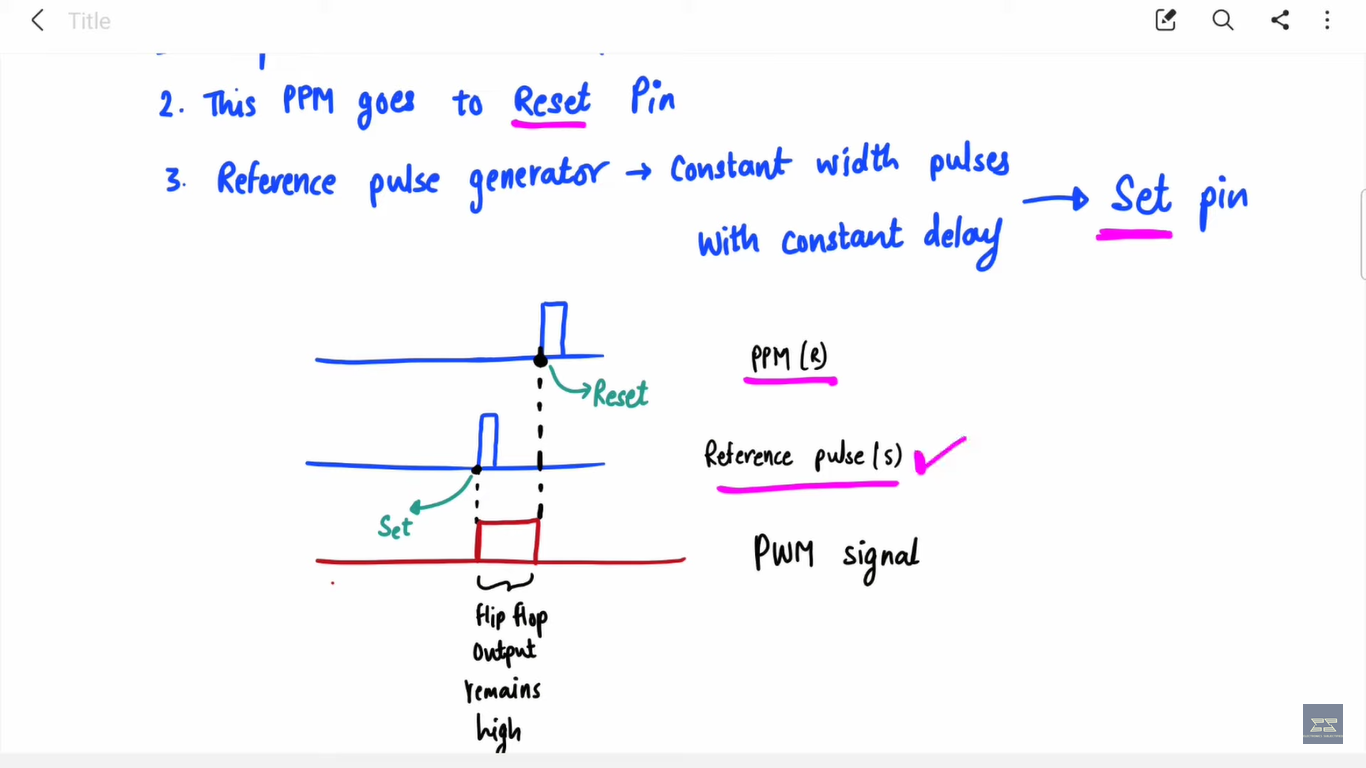 Title
2. This PPM goes to Reset Pin
3. Reference pulse generator → Constant width pulses
with constant delay → Set pin
PPM (R)
Reset
Reference pulse (S) ✓
Set
PWM signal
flip flop
output
remains
high